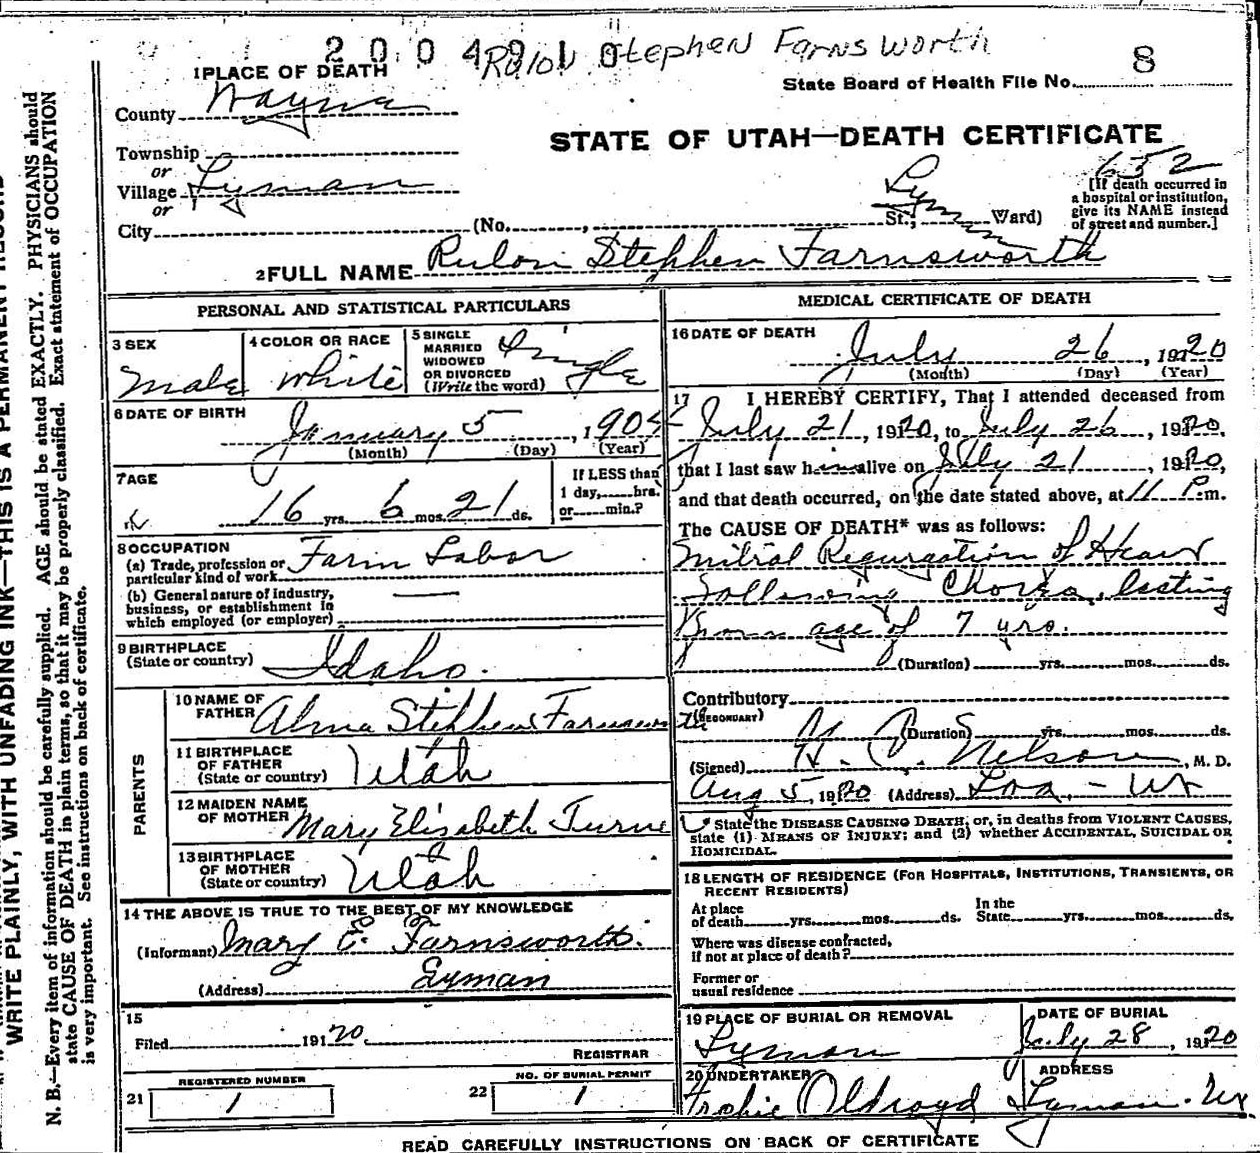 2004910 Stephen Farnsworth
1 PLACE OF DEATH
State Board of Health File No. 8
County Wayne
STATE OF UTAH—DEATH CERTIFICATE
Township
or
Village Lyman
or
City (No. , St.; Ward)
Lyman
652
[If death occurred in
a hospital or institution,
give its NAME instead
of street and number.]
2 FULL NAME Rulon Stephen Farnsworth
PERSONAL AND STATISTICAL PARTICULARS
3 SEX
Male
4 COLOR OR RACE
White
5 SINGLE
MARRIED
WIDOWED
OR DIVORCED
(Write the word)
Single
6 DATE OF BIRTH
January 5, 1904
(Month) (Day) (Year)
7 AGE
16 yrs. 6 mos. 21 ds.
If LESS than
1 day,......hrs.
or......min.?
8 OCCUPATION
(a) Trade, profession or
particular kind of work Farm Labor
(b) General nature of industry,
business, or establishment in
which employed (or employer)
9 BIRTHPLACE
(State or country) Idaho.
PARENTS
10 NAME OF
FATHER Alma Stephen Farnsworth
11 BIRTHPLACE
OF FATHER
(State or country) Utah
12 MAIDEN NAME
OF MOTHER Mary Elizabeth Turne
13 BIRTHPLACE
OF MOTHER
(State or country) Utah
14 THE ABOVE IS TRUE TO THE BEST OF MY KNOWLEDGE
(Informant) Mary E. Farnsworth.
(Address) Lyman
15
Filed 1920
REGISTRAR
REGISTERED NUMBER
21 1
NO. OF BURIAL PERMIT
22 1
MEDICAL CERTIFICATE OF DEATH
16 DATE OF DEATH
July 26, 1920
(Month) (Day) (Year)
17 I HEREBY CERTIFY, That I attended deceased from
July 21, 1920, to July 26, 1920,
that I last saw him alive on July 21, 1920,
and that death occurred, on the date stated above, at 11 P.m.
The CAUSE OF DEATH* was as follows:
Mitral Regurgation of Heart
Following Chorea, lasting
From age of 7 yrs.
(Duration) yrs. mos. ds.
Contributory
(SECONDARY)
(Duration) yrs. mos. ds.
(Signed) Nelson, M. D.
Aug 5, 1920 (Address) Loa, - Ut
State the DISEASE CAUSING DEATH; or, in deaths from VIOLENT CAUSES,
state (1) MEANS OF INJURY; and (2) whether ACCIDENTAL, SUICIDAL OR
HOMICIDAL.
18 LENGTH OF RESIDENCE (FOR HOSPITALS, INSTITUTIONS, TRANSIENTS, OR
RECENT RESIDENTS)
At place
of death......yrs......mos......ds.
In the
State......yrs......mos......ds.
Where was disease contracted,
if not at place of death?
Former or
usual residence
19 PLACE OF BURIAL OR REMOVAL
Lyman
DATE OF BURIAL
July 28, 1920
20 UNDERTAKER
Oldroyd
ADDRESS
Lyman. Ut.
READ CAREFULLY INSTRUCTIONS ON BACK OF CERTIFICATE
WRITE PLAINLY, WITH UNFADING INK—THIS IS A PERMANENT RECORD
N. B.—Every item of information should be carefully supplied. AGE should be stated EXACTLY. PHYSICIANS should
state CAUSE OF DEATH in plain terms, so that it may be properly classified. Exact statement of OCCUPATION
is very important. See instructions on back of certificate.